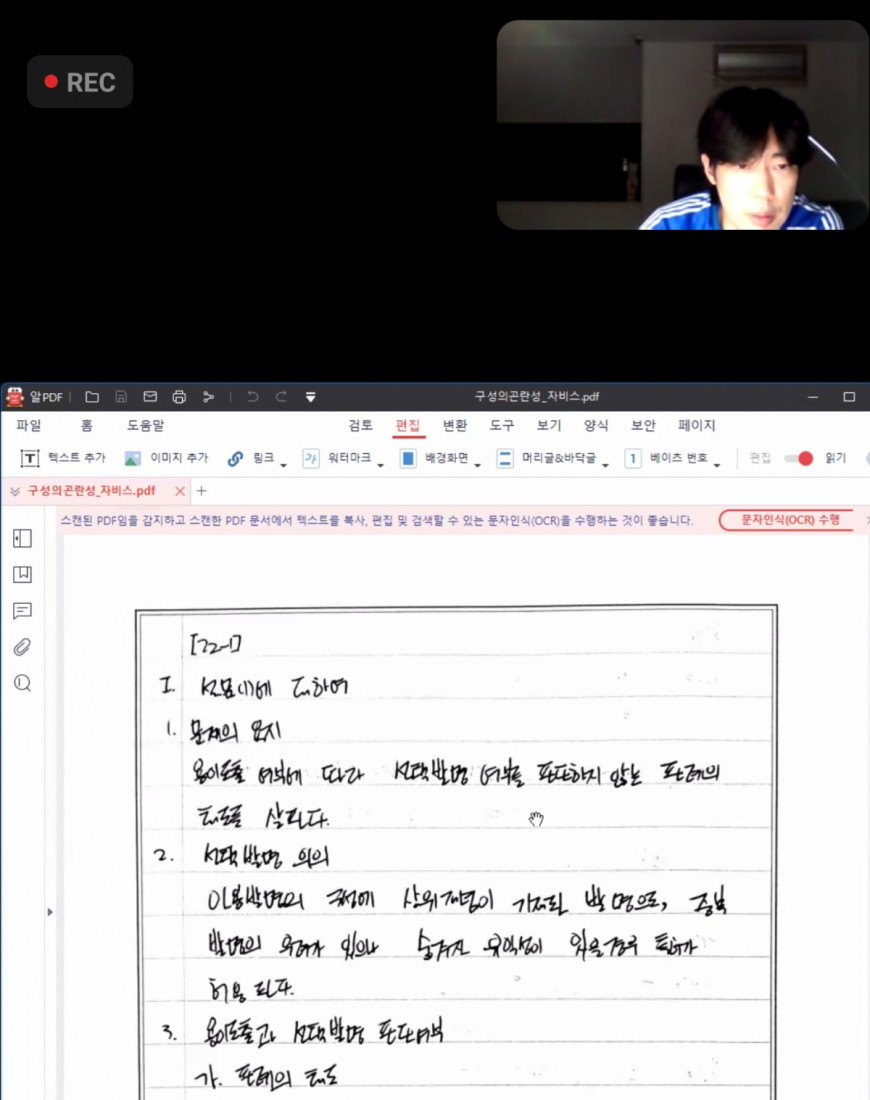 REC
알PDF
구성의곤란성_자비스.pdf
파일 홈 도움말 검토 편집 변환 도구 보기 양식 보안 페이지
텍스트 추가 이미지 추가 링크 워터마크 배경화면 머리글&바닥글 베이츠 번호 편집 읽기
구성의곤란성_자비스.pdf
스캔된 PDF임을 감지하고 스캔한 PDF 문서에서 텍스트를 복사, 편집 및 검색할 수 있는 문자인식(OCR)을 수행하는 것이 좋습니다. 문자인식(OCR) 수행
[22-1]
I. 설문(1)에 대하여
1. 문제의 요지
용이도출 여부에 따라 선택발명 여부를 판단하지 않는 판례의
태도를 살핀다.
2. 선택발명 의의
인용발명의 구성에 상위개념이 기재된 발명으로, 중복
발명의 우려가 있으나 숨겨진 유익성이 있을경우 특허가
허용 된다.
3. 용이도출과 선택발명 판단여부
가. 판례의 태도